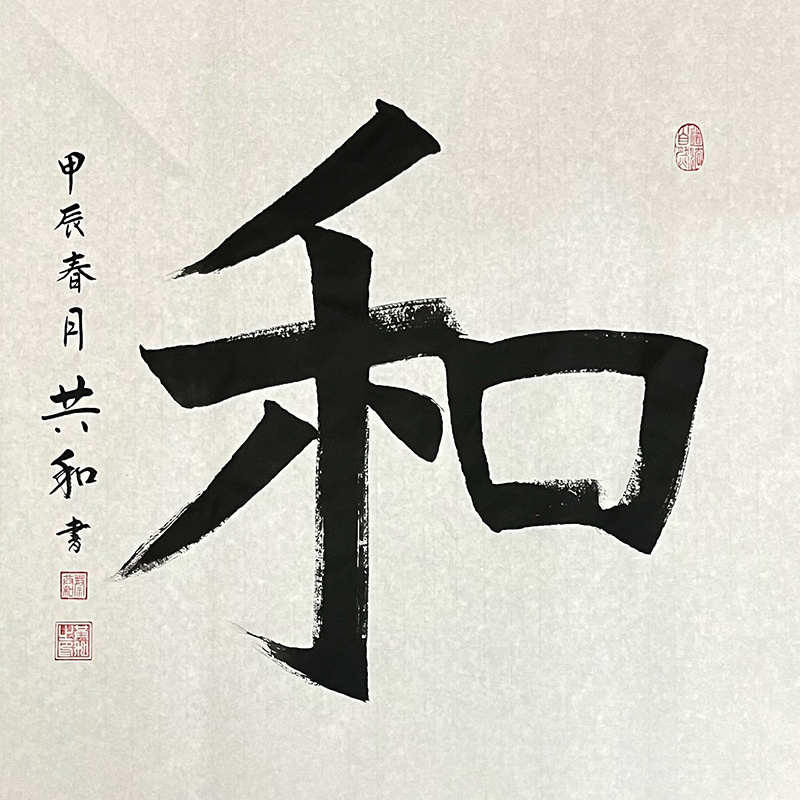 和
甲辰春月共和書